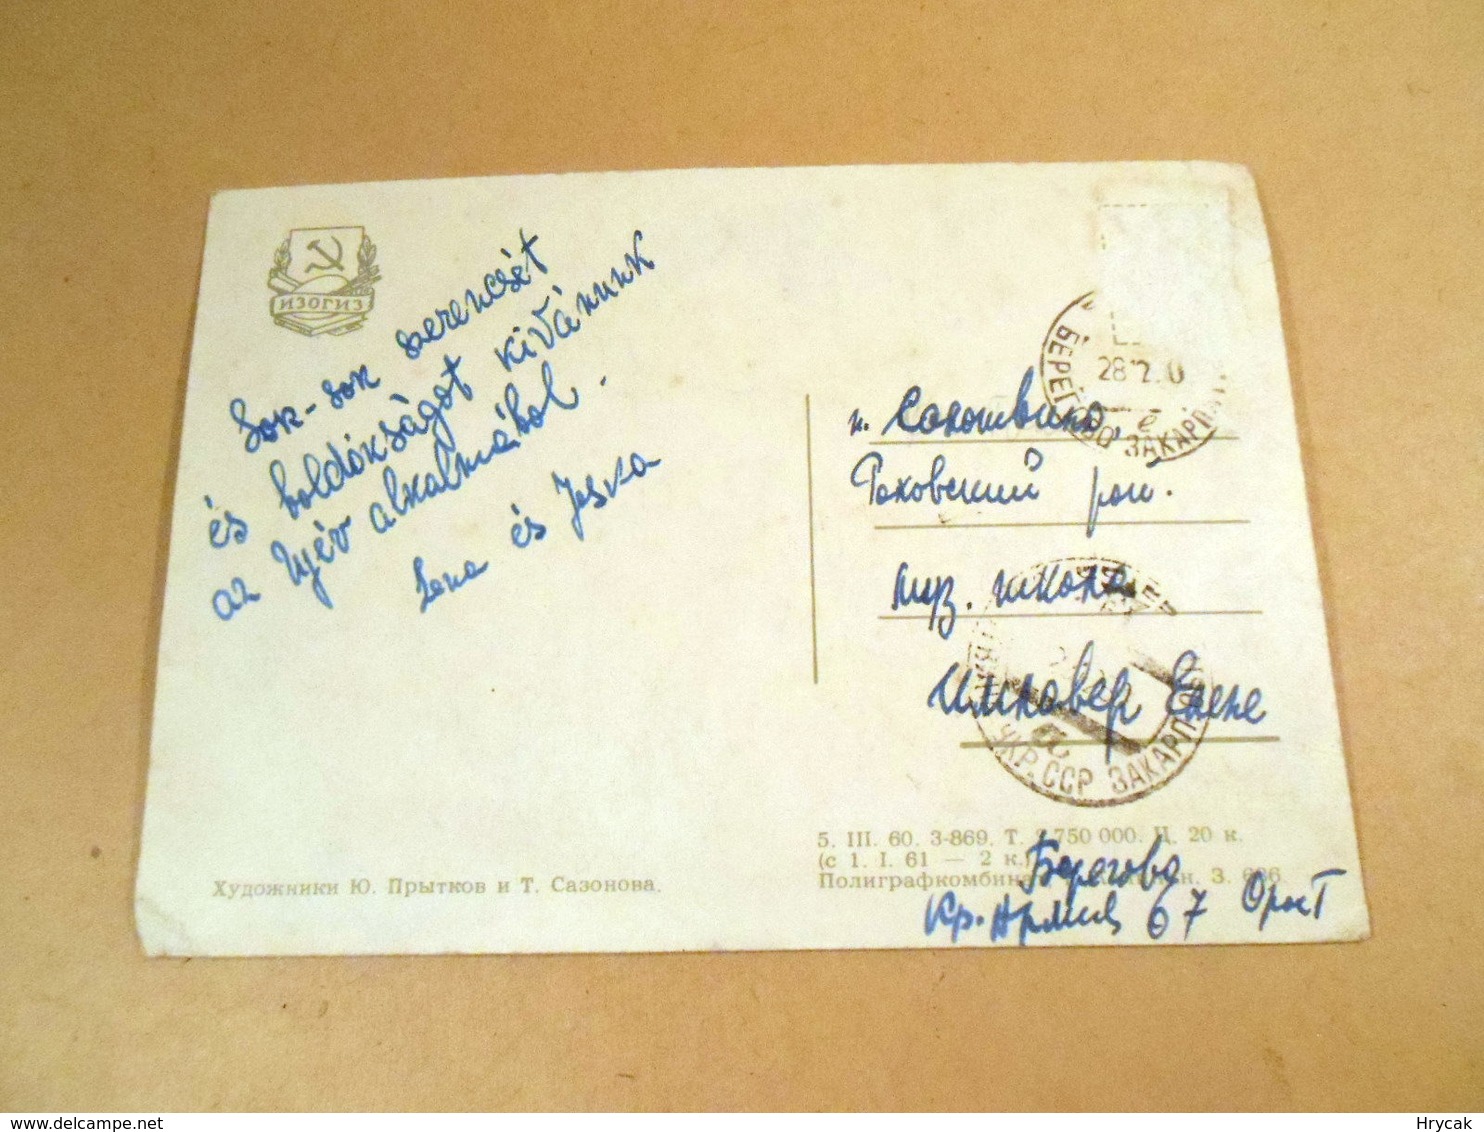 ИЗОГИЗ
Sok-sok szerencsét
és boldokságot kivánunk
az Ujév alkalmából.
Lena és Joska
БЕРЕГОВО ЗАКАРПАТ
28 12 0
п. Солотвино,
Раховский рай.
муз. школа
Елене
УКР. ССР ЗАКАРП
5. III. 60. З-869. Т. 750 000. Ц. 20 к.
(с 1. I. 61 — 2 к.)
Полиграфкомбинат З. 636
Художники Ю. Прытков и Т. Сазонова.
Берегово
Кр. Армии 67
delcampe.net
Hrycak